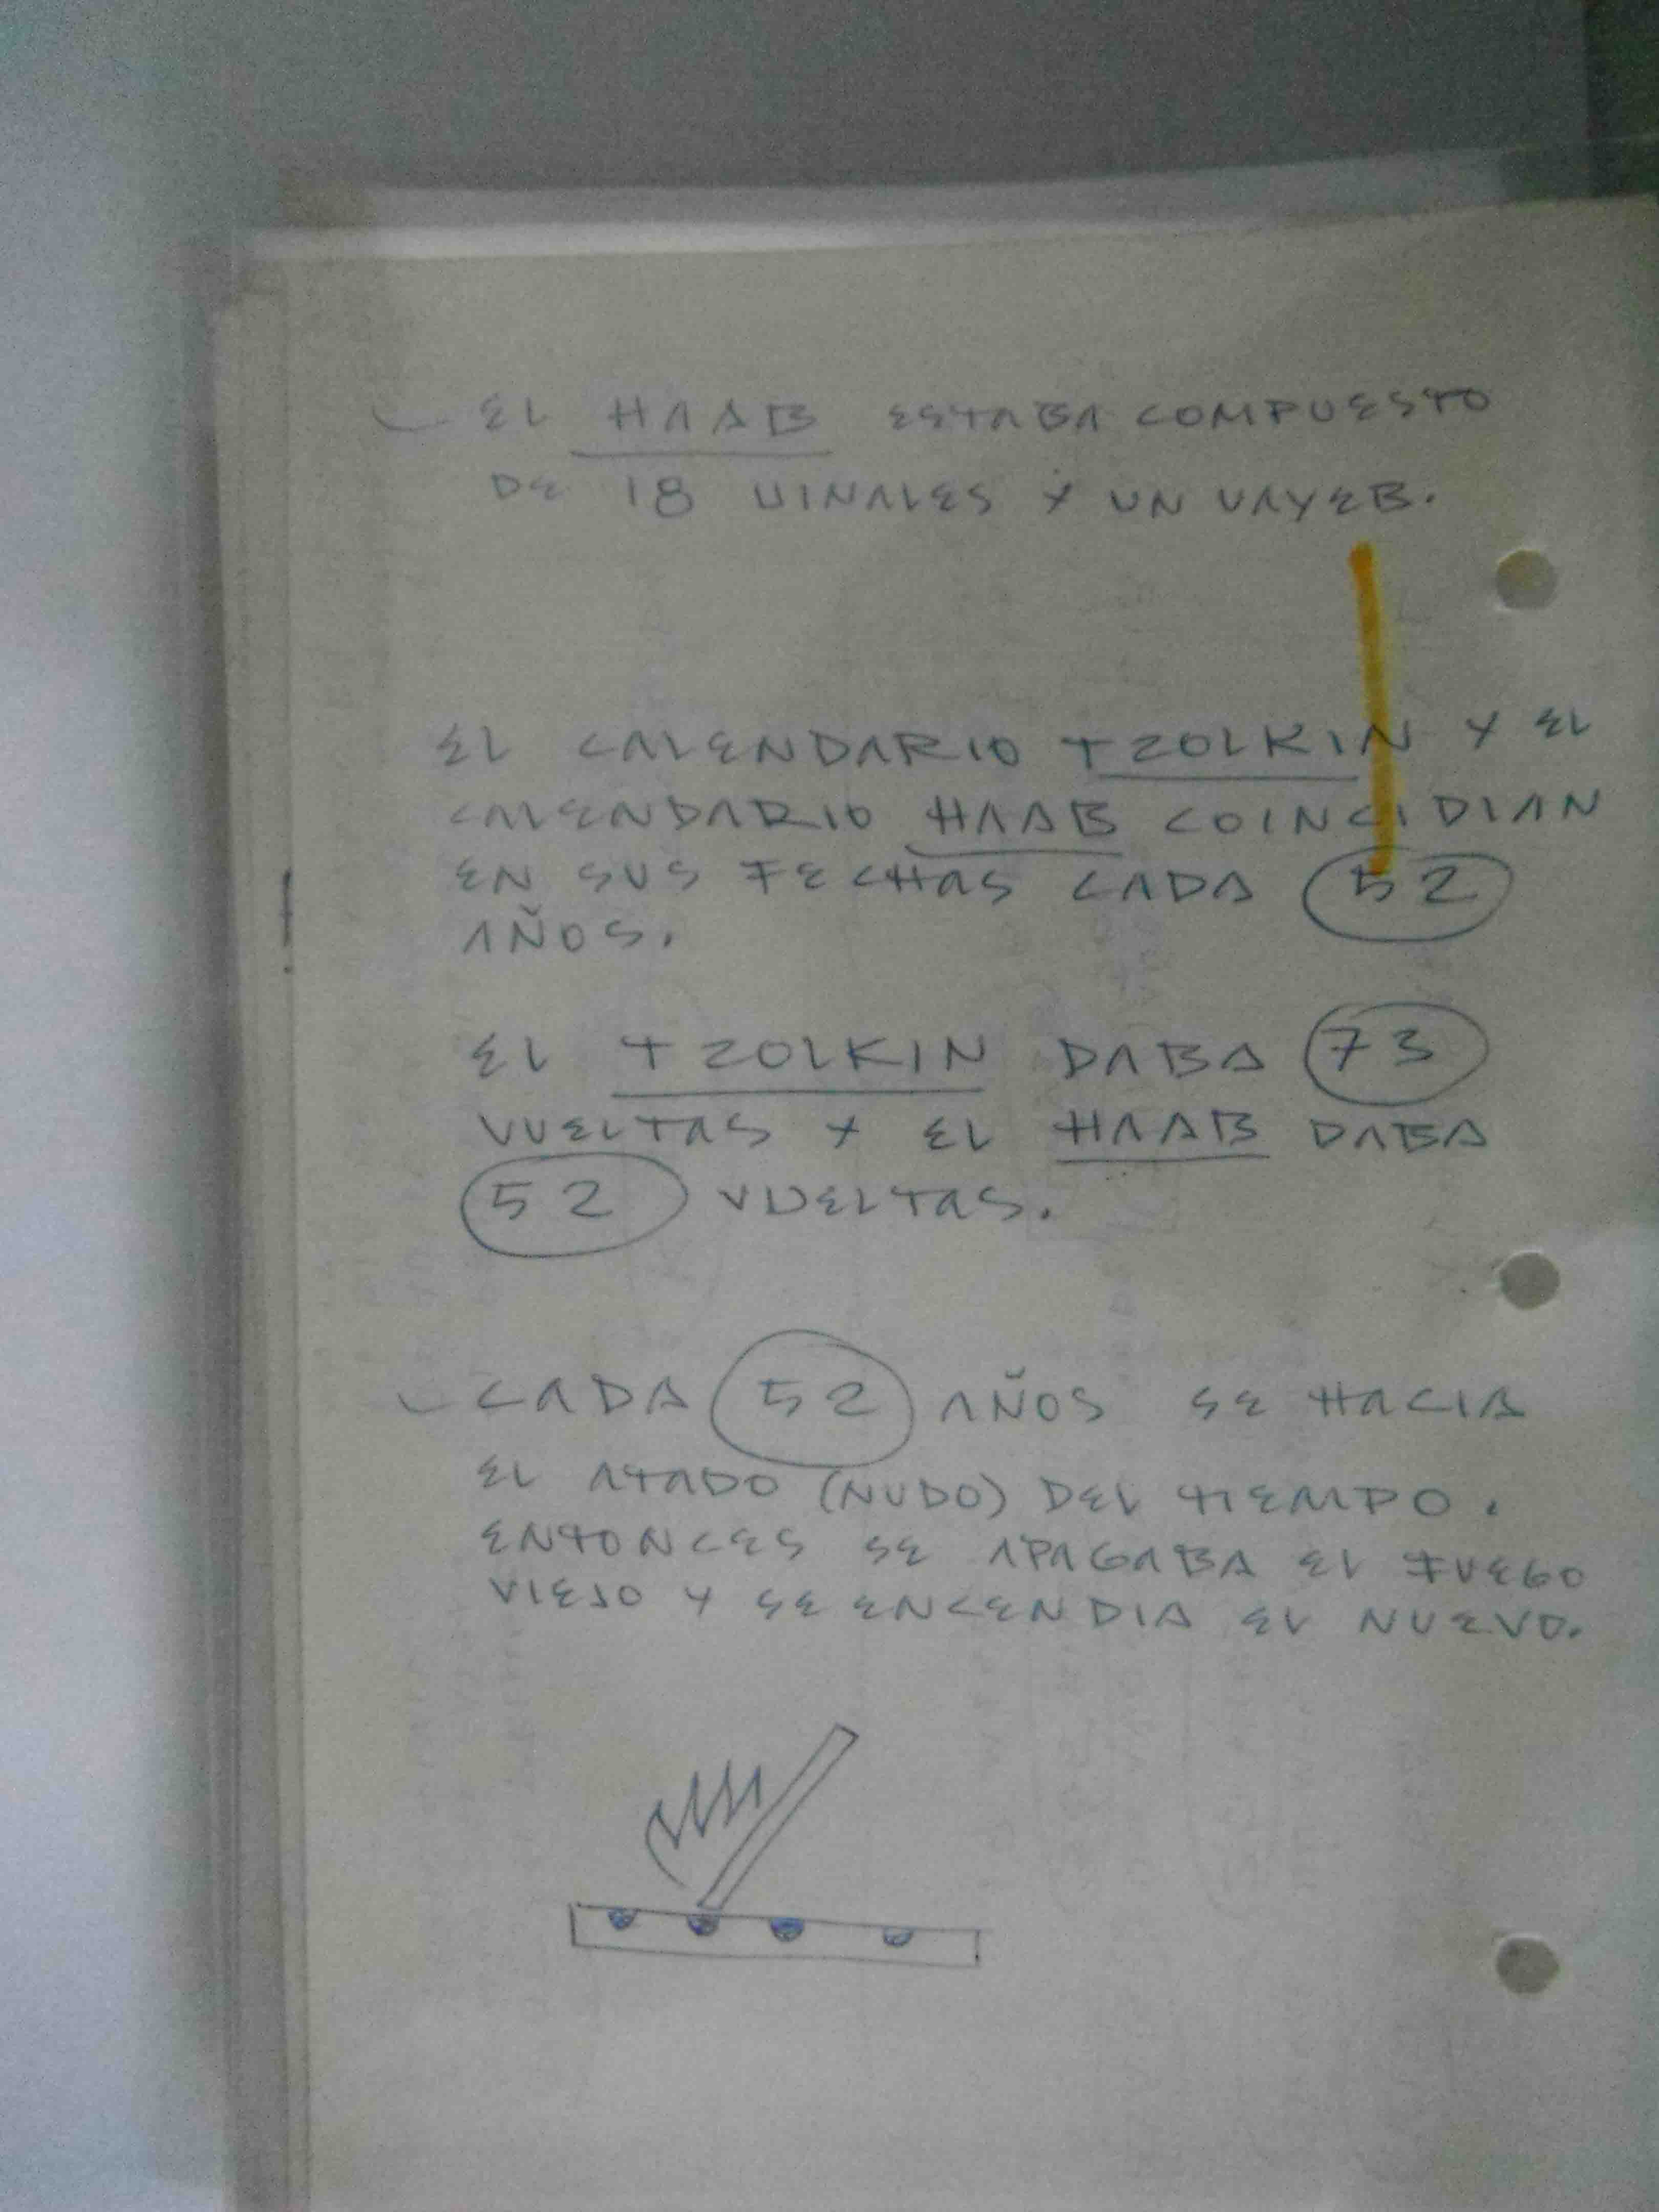 - EL HAAB ESTABA COMPUESTO
DE 18 UINALES Y UN VAYEB.
EL CALENDARIO TZOLKIN Y EL
CALENDARIO HAAB COINCIDIAN
EN SUS FECHAS CADA 52
AÑOS.
EL TZOLKIN DABA 73
VUELTAS Y EL HAAB DABA
52 VUELTAS.
- CADA 52 AÑOS SE HACIA
EL ATADO (NUDO) DEL TIEMPO.
ENTONCES SE APAGABA EL FUEGO
VIEJO Y SE ENCENDIA EL NUEVO.